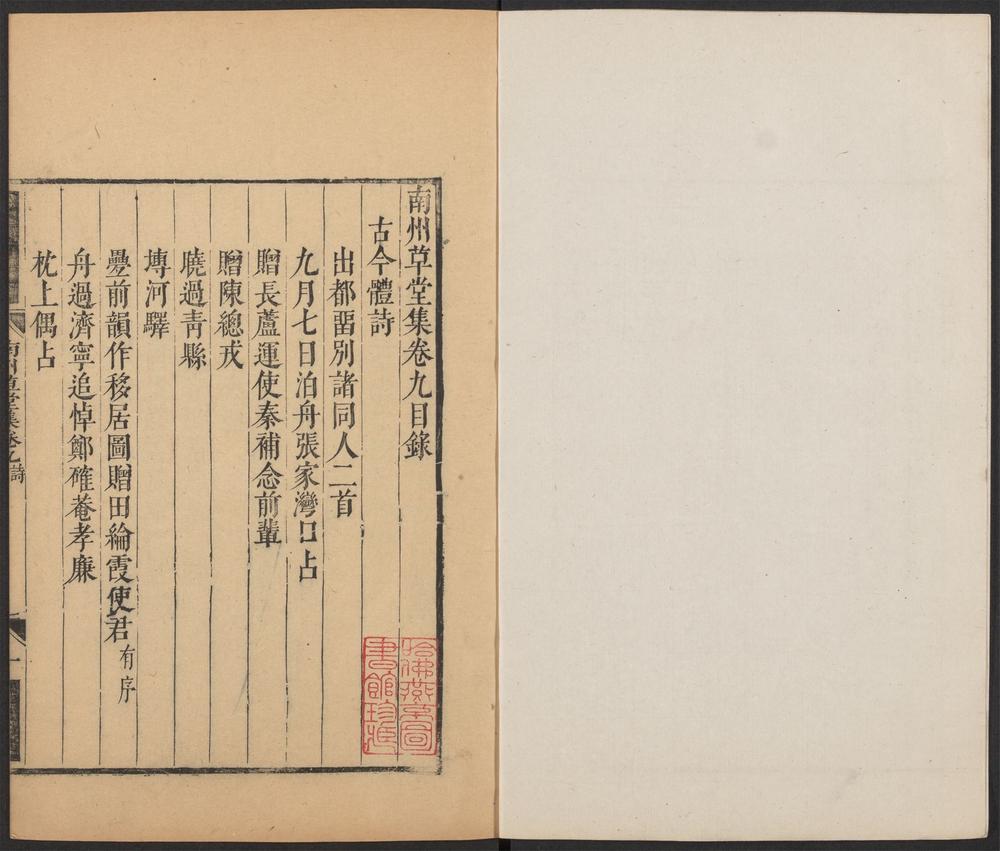 南州草堂集卷九目錄
古今體詩
出都畱別諸同人二首
九月七日泊舟張家灣口占
贈長蘆運使秦補念前輩
贈陳總戎
曉過靑縣
塼河驛
疊前韻作移居圖贈田綸霞使君有序
舟過濟寧追悼鄭確菴孝廉
枕上偶占
南州草堂集卷九 詩
一
哈佛燕京圖
書館珍藏